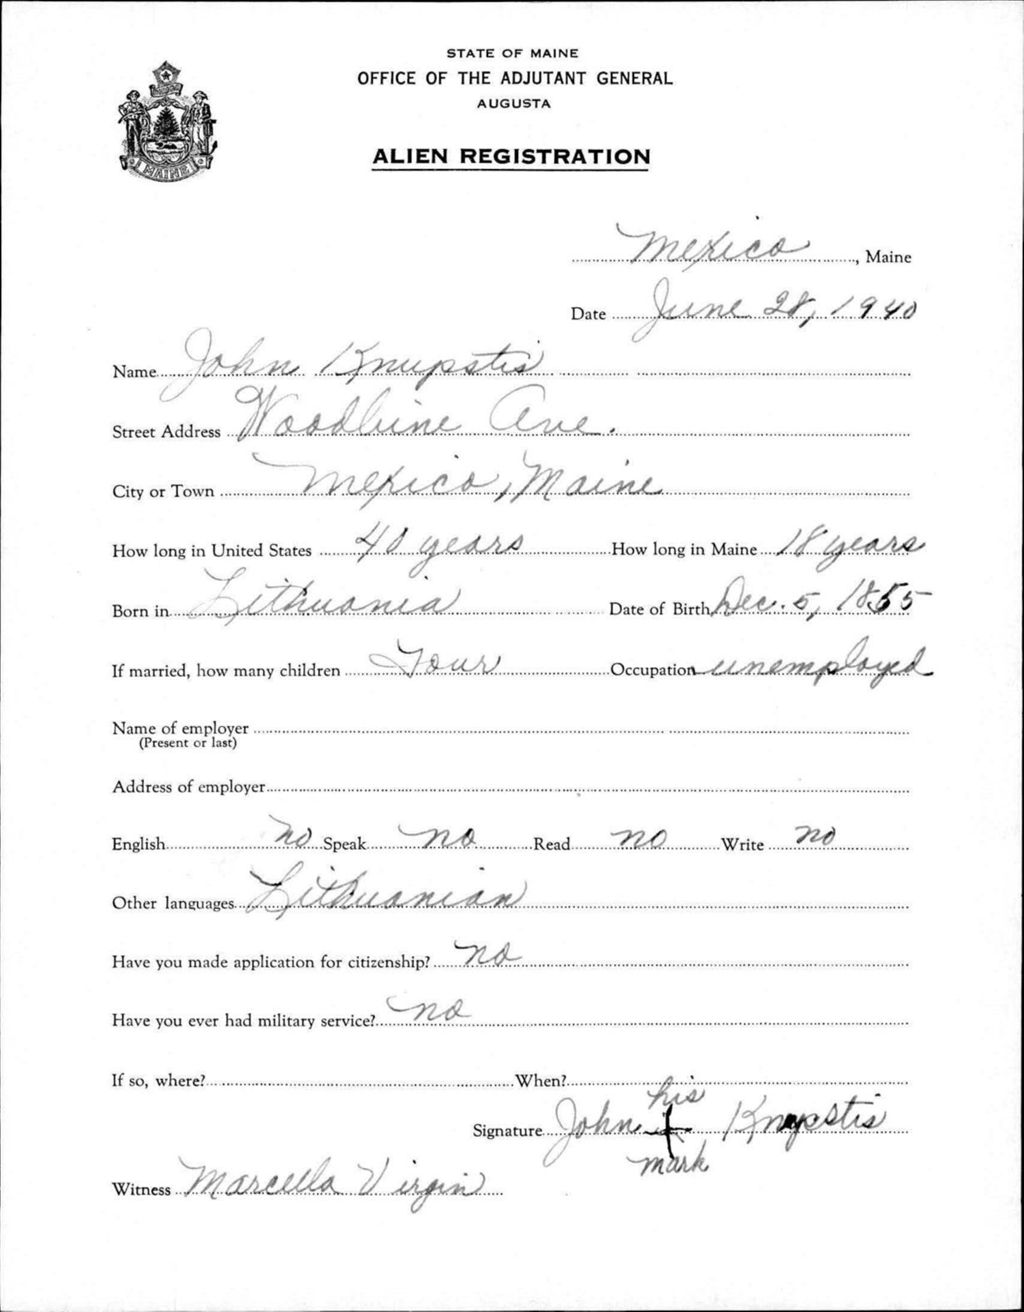 STATE OF MAINE
OFFICE OF THE ADJUTANT GENERAL
AUGUSTA
ALIEN REGISTRATION
MAINE
Mexico, Maine
Date June 28, 1940
Name John Knupstis
Street Address Woodbine Ave.
City or Town Mexico, Maine
How long in United States 40 years How long in Maine 18 years
Born in Lithuania Date of Birth Dec. 5, 1865
If married, how many children Four Occupation unemployed
Name of employer
(Present or last)
Address of employer
English no Speak no Read no Write no
Other languages Lithuanian
Have you made application for citizenship? no
Have you ever had military service? no
If so, where? When?
his
Signature John Knupstis
mark
Witness Marcella Virgin